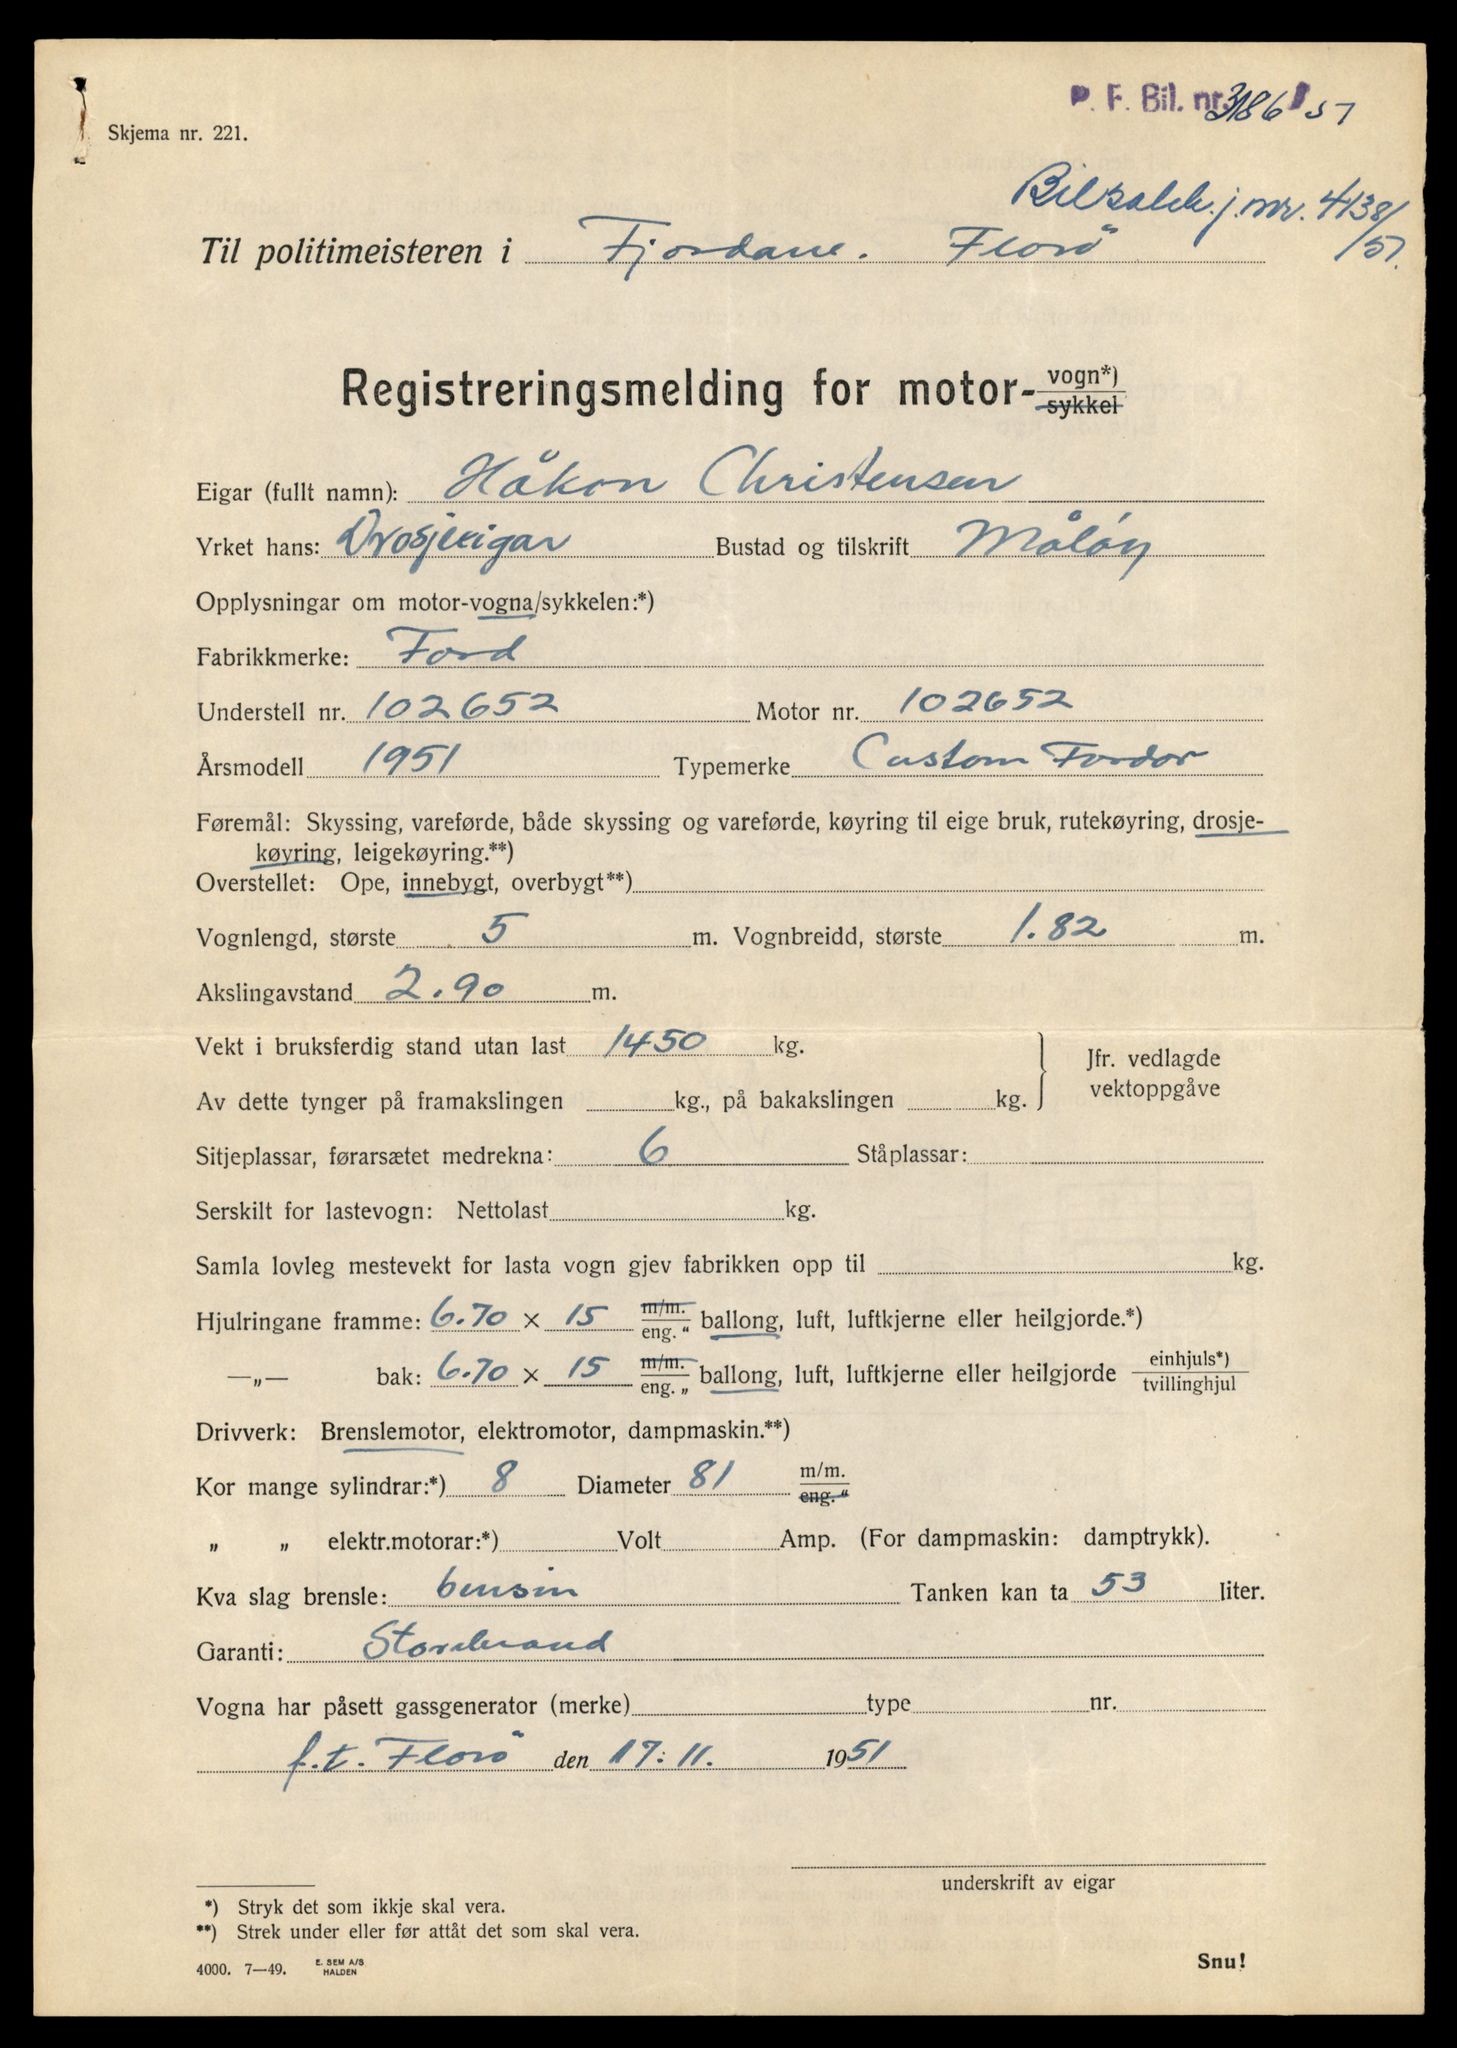 P. F. Bil. nr. 3186 / 51
Skjema nr. 221.
Bilsakk. j. nr. 4138/
/51.
Til politimeisteren i Fjordane. Florö
Registreringsmelding for motor-vogn*)
sykkel
Eigar (fullt namn): Håkon Christensen
Yrket hans: Drosjeeigar Bustad og tilskrift Måløy
Opplysningar om motor-vogna/sykkelen:*)
Fabrikkmerke: Ford
Understell nr. 102652 Motor nr. 102652
Årsmodell 1951 Typemerke Custom Fordor
Føremål: Skyssing, vareførde, både skyssing og vareførde, køyring til eige bruk, rutekøyring, drosje-
køyring, leigekøyring.**)
Overstellet: Ope, innebygt, overbygt**)
Vognlengd, største 5 m. Vognbreidd, største 1.82 m.
Akslingavstand 2.90 m.
Vekt i bruksferdig stand utan last 1450 kg.
Av dette tynger på framakslingen kg., på bakakslingen kg.
Jfr. vedlagde
vektoppgåve
Sitjeplassar, førarsætet medrekna: 6 Ståplassar:
Serskilt for lastevogn: Nettolast kg.
Samla lovleg mestevekt for lasta vogn gjev fabrikken opp til kg.
Hjulringane framme: 6.70 × 15 m/m. eng. " ballong, luft, luftkjerne eller heilgjorde.*)
—„— bak: 6.70 × 15 m/m. eng. „ ballong, luft, luftkjerne eller heilgjorde einhjuls*) tvillinghjul
Drivverk: Brenslemotor, elektromotor, dampmaskin.**)
Kor mange sylindrar:*) 8 Diameter 81 m/m. eng. "
„ „ elektr.motorar:*) Volt Amp. (For dampmaskin: damptrykk).
Kva slag brensle: bensin Tanken kan ta 53 liter.
Garanti: Storebrand
Vogna har påsett gassgenerator (merke) type nr.
f.t. Florö den 17. 11. 1951
underskrift av eigar
*) Stryk det som ikkje skal vera.
**) Strek under eller før attåt det som skal vera.
4000. 7—49. E. SEM A/S
HALDEN
Snu!